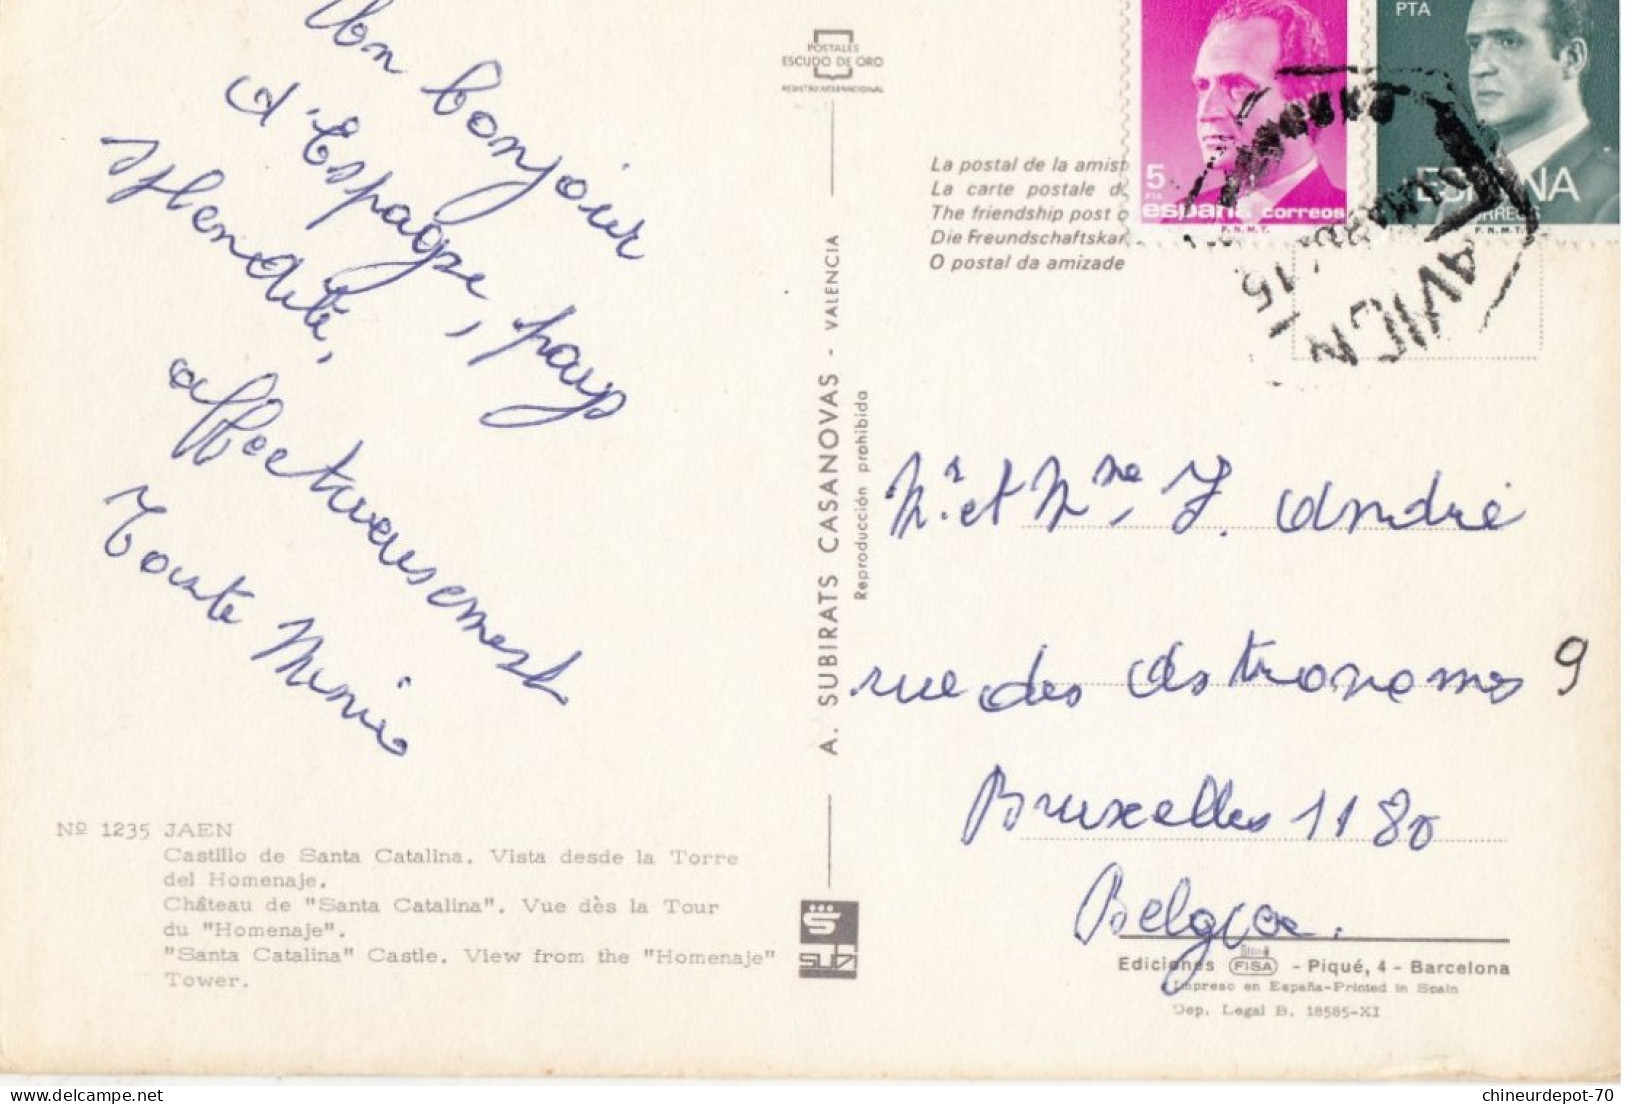 Un bonjour
d'Espagne, pays
splendide,
affectueusement
Tante Mimie
Nº 1235 JAEN
Castillo de Santa Catalina. Vista desde la Torre
del Homenaje.
Château de "Santa Catalina". Vue dès la Tour
du "Homenaje".
"Santa Catalina" Castle. View from the "Homenaje"
Tower.
POSTALES
ESCUDO DE ORO
REGISTRO INTERNACIONAL
A. SUBIRATS CASANOVAS - VALENCIA
Reproducción prohibida
SUBI
La postal de la amist
La carte postale d
The friendship post c
Die Freundschaftskar
O postal da amizade
5
PTA
españa correos
F.N.M.T.
PTA
ESPAÑA
CORREOS
F.N.M.T.
15
Mr. et Mme. J. André
rue des Astronomes 9
Bruxelles 1180
Belgica.
Ediciones FISA - Piqué, 4 - Barcelona
Impreso en España-Printed in Spain
Dep. Legal B. 18585-XI
chineurdepot-70